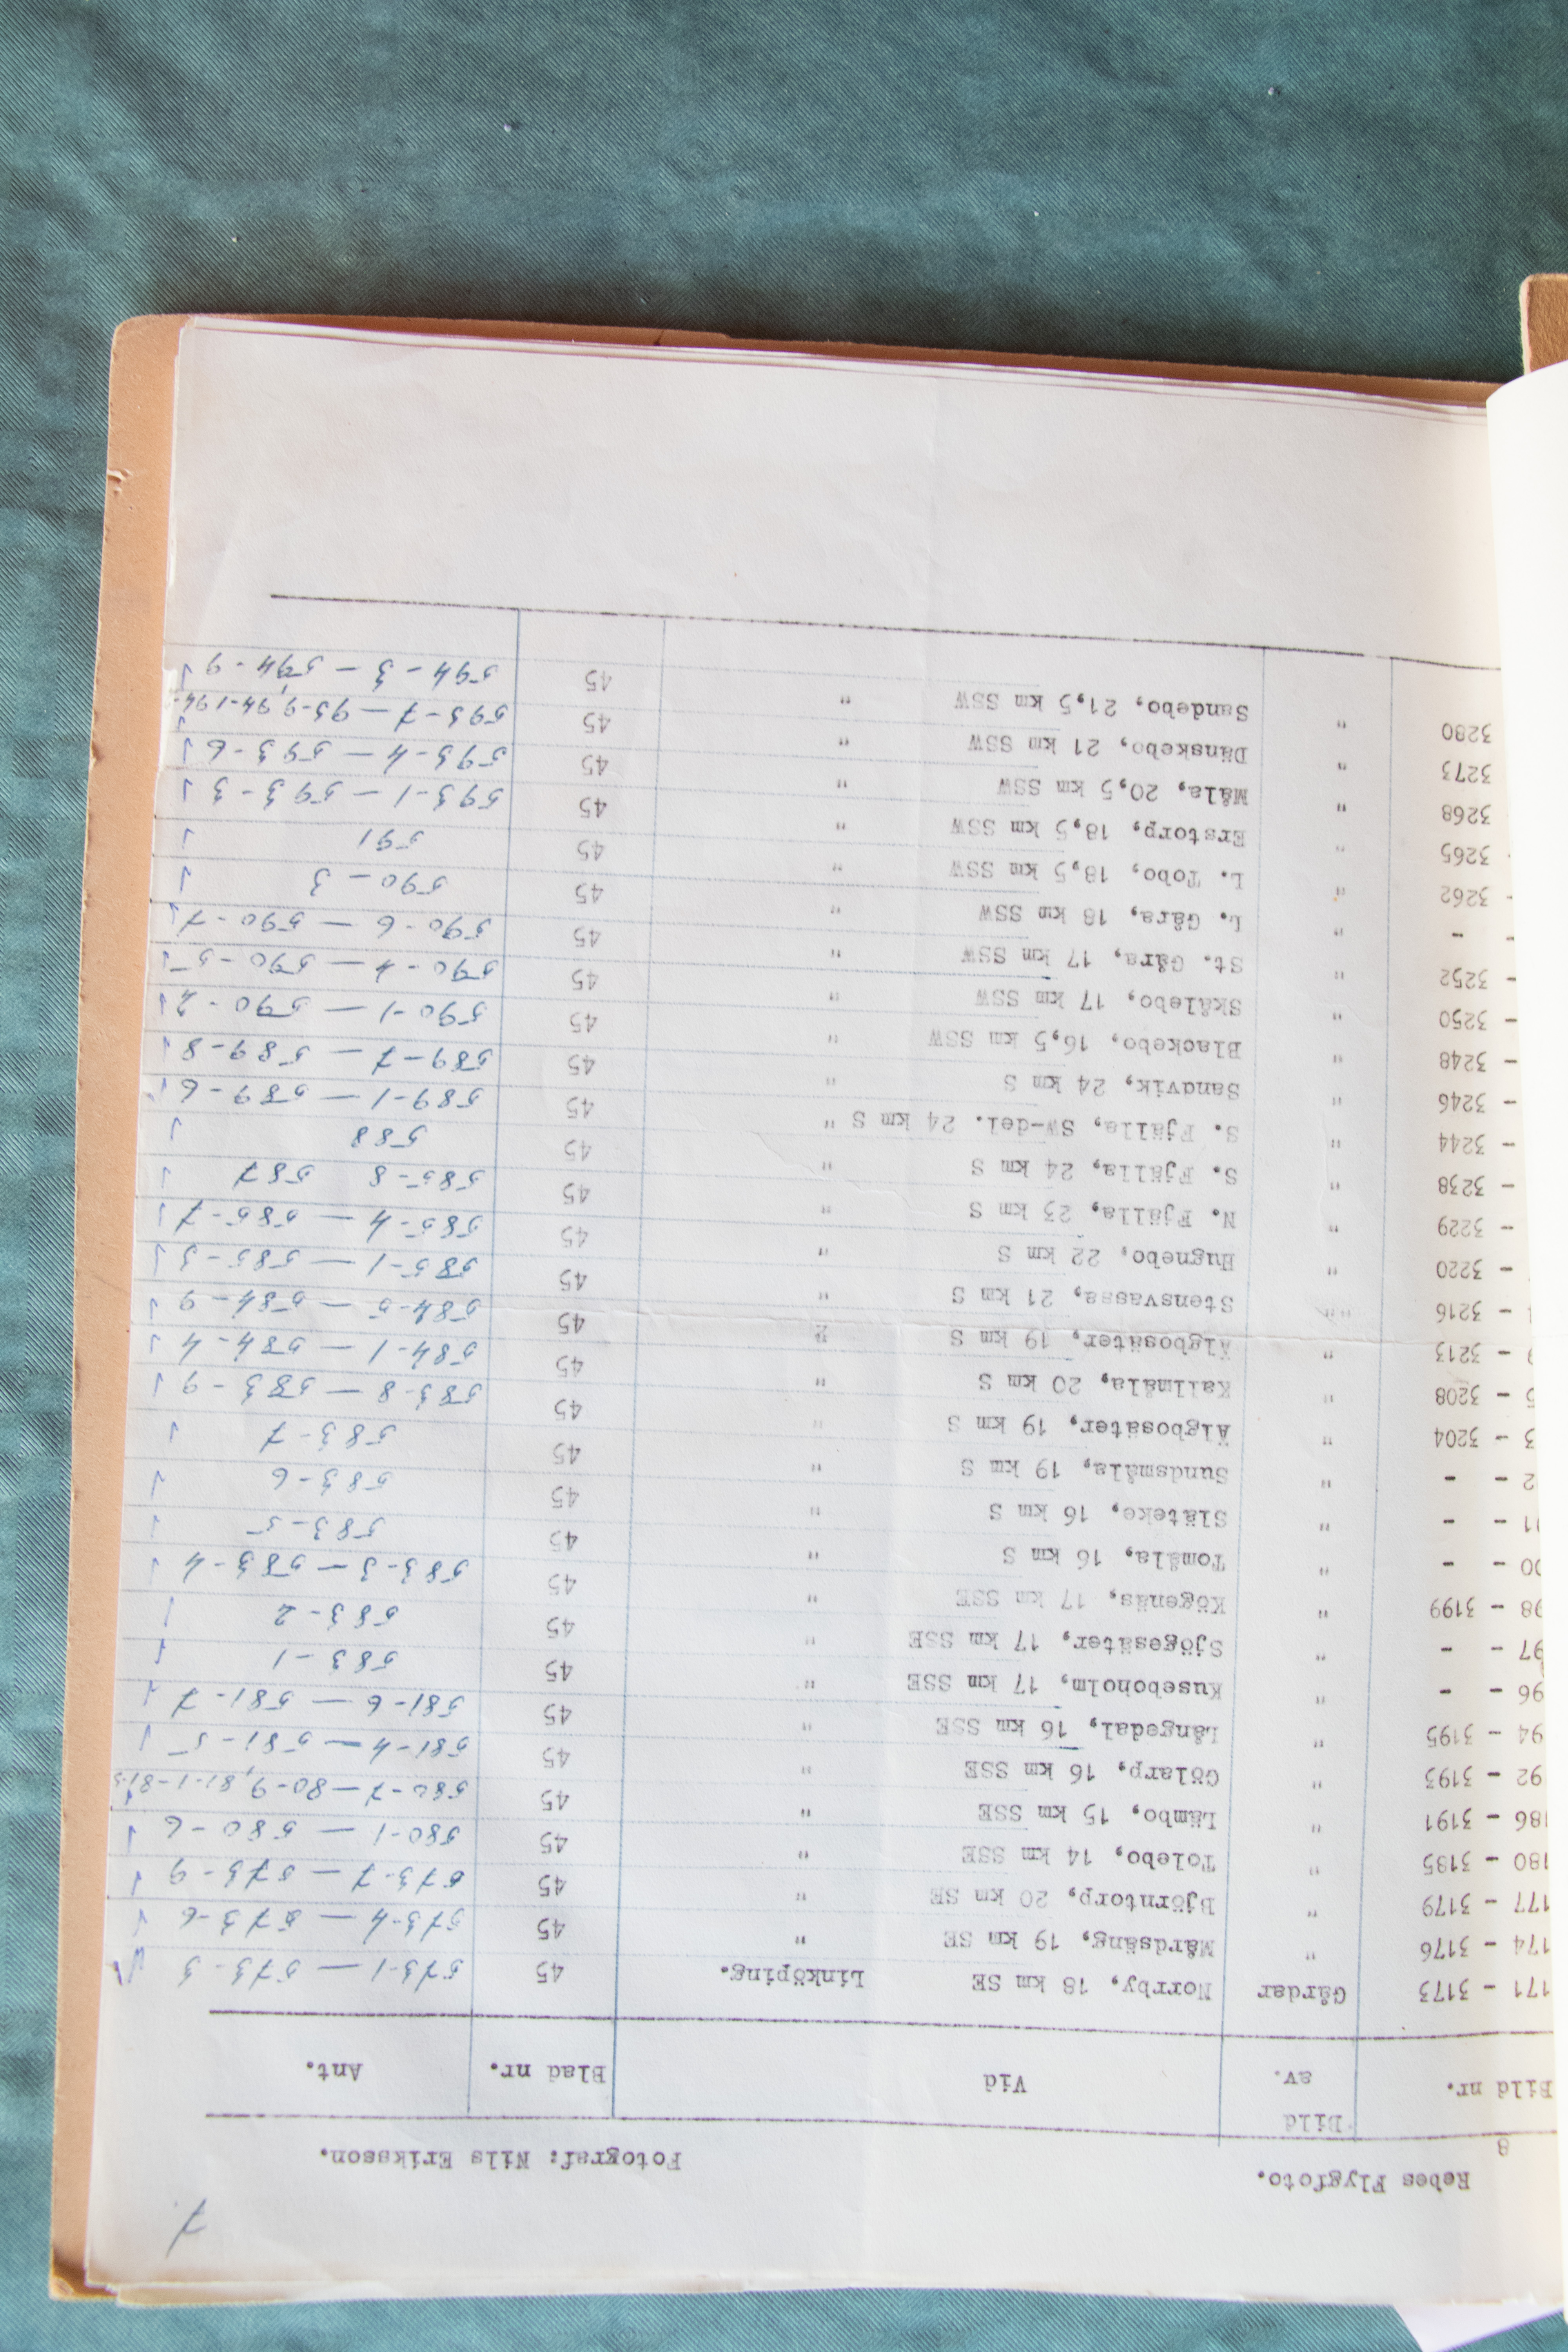 7
Rebes Flygfoto. Fotograf: Nils Eriksson.
8
Bild nr. Bild av. Vid Blad nr. Ant.
171 - 3173 Gårdar Norrby, 18 km SE Linköping. 45 573-1 — 573-3
174 - 3176 " Mårdsäng, 19 km SE " 45 573-4 — 573-6
177 - 3179 " Björntorp, 20 km SE " 45 573-7 — 573-9
180 - 3185 " Tolebo, 14 km SSE " 45 580-1 — 580-6
186 - 3191 " Lämbo, 15 km SSE " 45 580-7 — 80-9, 81-1-81-3
92 - 3193 " Gölarp, 16 km SSE " 45 581-4 — 581-5
94 - 3195 " Långedal, 16 km SSE " 45 581-6 — 581-7
96 - - " Kuseboholm, 17 km SSE " 45 583-1
97 - - " Sjögesäter, 17 km SSE " 45 583-2
98 - 3199 " Kögenäs, 17 km SSE " 45 583-3 — 583-4
00 - - " Tomåla, 16 km S " 45 583-5
01 - - " Släteke, 16 km S " 45 583-6
2 - - " Sundsmåla, 19 km S " 45 583-7
3 - 3204 " Älgbosäter, 19 km S " 45 583-8 — 583-9
5 - 3208 " Kallmåla, 20 km S " 45 584-1 — 584-4
9 - 3213 " Älgbosäter, 19 km S " 45 584-5 — 584-9
- 3216 " Stensvassa, 21 km S " 45 585-1 — 585-3
- 3220 " Hugnebo, 22 km S " 45 585-4 — 585-7
- 3229 " N. Fjälla, 23 km S " 45 585-8 587
- 3238 " S. Fjälla, 24 km S " 45 588
- 3244 " S. Fjälla, SW-del. 24 km S " 45 589-1 — 589-6
- 3246 " Sandvik, 24 km S " 45 589-7 — 589-8
- 3248 " Blackebo, 16,5 km SSW " 45 590-1 — 590-2
- 3250 " Skålebo, 17 km SSW " 45 590-4 — 590-5
- 3252 " St. Gåra, 17 km SSW " 45 590-6 — 590-7
- - " L. Gåra, 18 km SSW " 45 590-3
- 3262 " L. Tobo, 18,5 km SSW " 45 591
- 3265 " Erstorp, 18,5 km SSW " 45 593-1 — 593-3
3268 " Måla, 20,5 km SSW " 45 593-4 — 593-6
3273 " Dänskebo, 21 km SSW " 45 593-7 — 93-9, 94-1-94-
3280 " Sandebo, 21,5 km SSW " 45 594-3 — 594-9